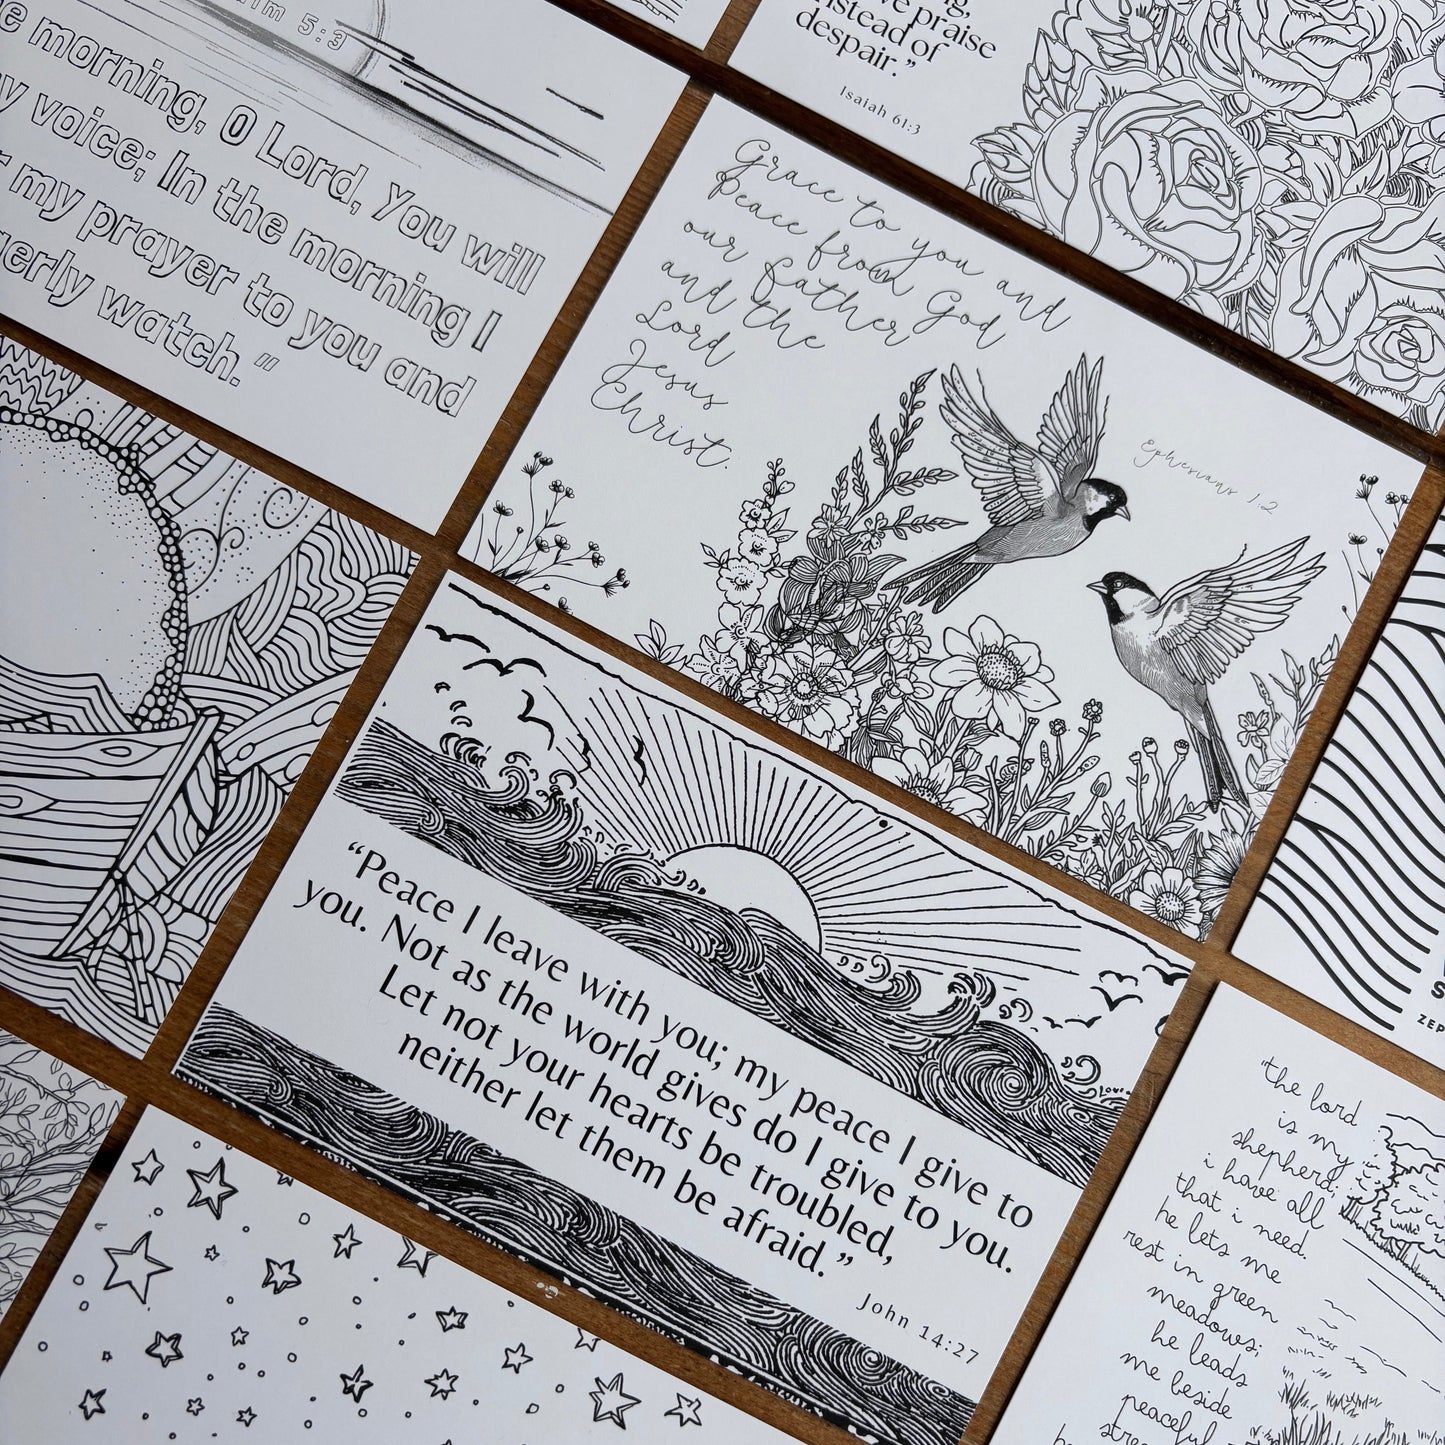 Psalm 5:3
morning, O Lord, You will
my voice; In the morning I
my prayer to you and
watch."
praise
instead of
despair."
Isaiah 61:3
Grace to you and
Peace from God
our Father
and the
Lord
Jesus
Christ.
Ephesians 1:2
"Peace I leave with you; my peace I give to
you. Not as the world gives do I give to you.
Let not your hearts be troubled,
neither let them be afraid."
John 14:27
"the lord
is my
shepherd;
i have all
that i need.
he lets me
rest in green
meadows;
he leads
me beside
peaceful